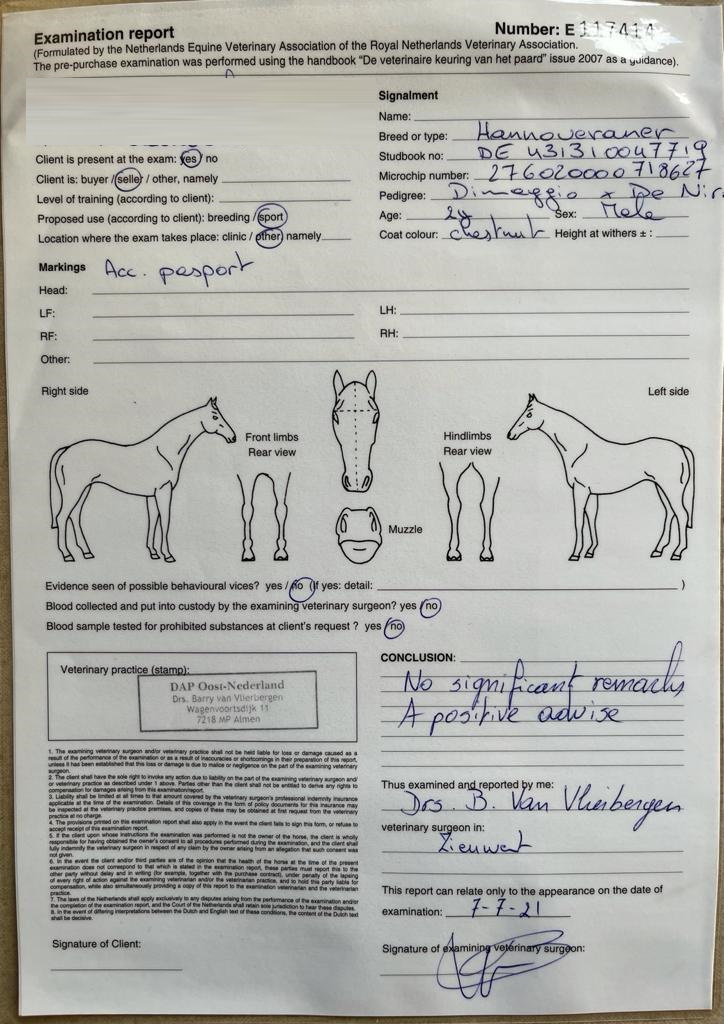 Examination report
Number: E 117414
(Formulated by the Netherlands Equine Veterinary Association of the Royal Netherlands Veterinary Association.
The pre-purchase examination was performed using the handbook "De veterinaire keuring van het paard" issue 2007 as a guidance).
Client is present at the exam: yes / no
Client is: buyer / seller / other, namely
Level of training (according to client):
Proposed use (according to client): breeding / sport
Location where the exam takes place: clinic / other, namely
Signalment
Name:
Breed or type: Hannoveraner
Studbook no: DE 431310047719
Microchip number: 276020000718627
Pedigree: Dimaggio x De Nir
Age: 2y Sex: Male
Coat colour: chestnut Height at withers ± :
Markings Acc. pasport
Head:
LF: LH:
RF: RH:
Other:
Right side
Left side
Front limbs
Rear view
Hindlimbs
Rear view
Muzzle
Evidence seen of possible behavioural vices? yes / no (If yes: detail: )
Blood collected and put into custody by the examining veterinary surgeon? yes / no
Blood sample tested for prohibited substances at client's request ? yes / no
Veterinary practice (stamp):
DAP Oost-Nederland
Drs. Barry van Vlierbergen
Wagenvoortsdijk 11
7218 MP Almen
1. The examining veterinary surgeon and/or veterinary practice shall not be held liable for loss or damage caused as a
result of the performance of the examination or as a result of inaccuracies or shortcomings in their preparation of this report,
unless it has been established that this loss or damage is due to malice or negligence on the part of the examining veterinary
surgeon.
2. The client shall have the sole right to invoke any action due to liability on the part of the examining veterinary surgeon and/
or veterinary practice as described under 1 above. Parties other than the client shall not be entitled to derive any rights to
compensation for damages arising from this examination/report.
3. Liability shall be limited at all times to that amount covered by the veterinary surgeon's professional indemnity insurance
applicable at the time of the examination. Details of this coverage in the form of policy documents for this insurance may
be inspected at the veterinary premises, and copies of these may be obtained at first request from the veterinary
practice at no charge.
4. The provisions printed on this examination report shall also apply in the event the client fails to sign this form, or refuse to
accept receipt of this examination report.
5. If the client upon whose instructions the examination was performed is not the owner of the horse, the client is wholly
responsible for having obtained the owner's consent to all procedures performed during the examination, and the client shall
fully indemnify the veterinary surgeon in respect of any claim by the owner arising from an allegation that such consent was
not given.
6. In the event the client and/or third parties are of the opinion that the health of the horse at the time of the present
examination does not correspond to that which is stated in the examination report, these parties must report this to the
other party without delay and in writing (for example, together with the purchase contract), under penalty of the lapsing
of every right of action against the examining veterinarian and/or the veterinary practice, and to hold this party liable for
compensation, while also simultaneously providing a copy of this report to the examination veterinarian and the veterinarian
practice.
7. The laws of the Netherlands shall apply exclusively to any disputes arising from the performance of the examination and/or
the completion of the examination report, and the Court of the Netherlands shall retain sole jurisdiction to hear these disputes.
8. In the event of differing interpretations between the Dutch and English text of these conditions, the content of the Dutch text
shall be decisive.
Signature of Client:
CONCLUSION:
No significant remarks
A positive advise
Thus examined and reported by me:
Drs. B. Van Vlierbergen
veterinary surgeon in:
Zieuwent
This report can relate only to the appearance on the date of
examination: 7-7-21
Signature of examining veterinary surgeon: